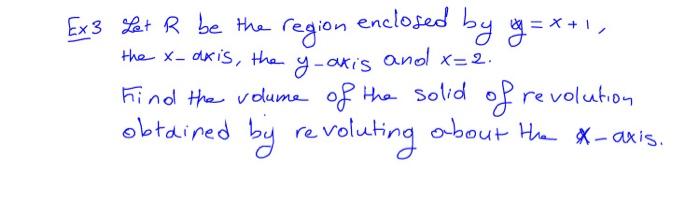 Ex3 Let R be the region enclosed by y = x + 1,
the x-axis, the y-axis and x = 2.
Find the volume of the solid of revolution
obtained by revoluting about the x-axis.